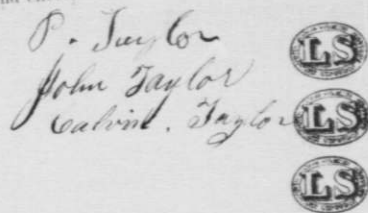 P. Taylor LS
John Taylor LS
Calvin. Taylor LS
LS